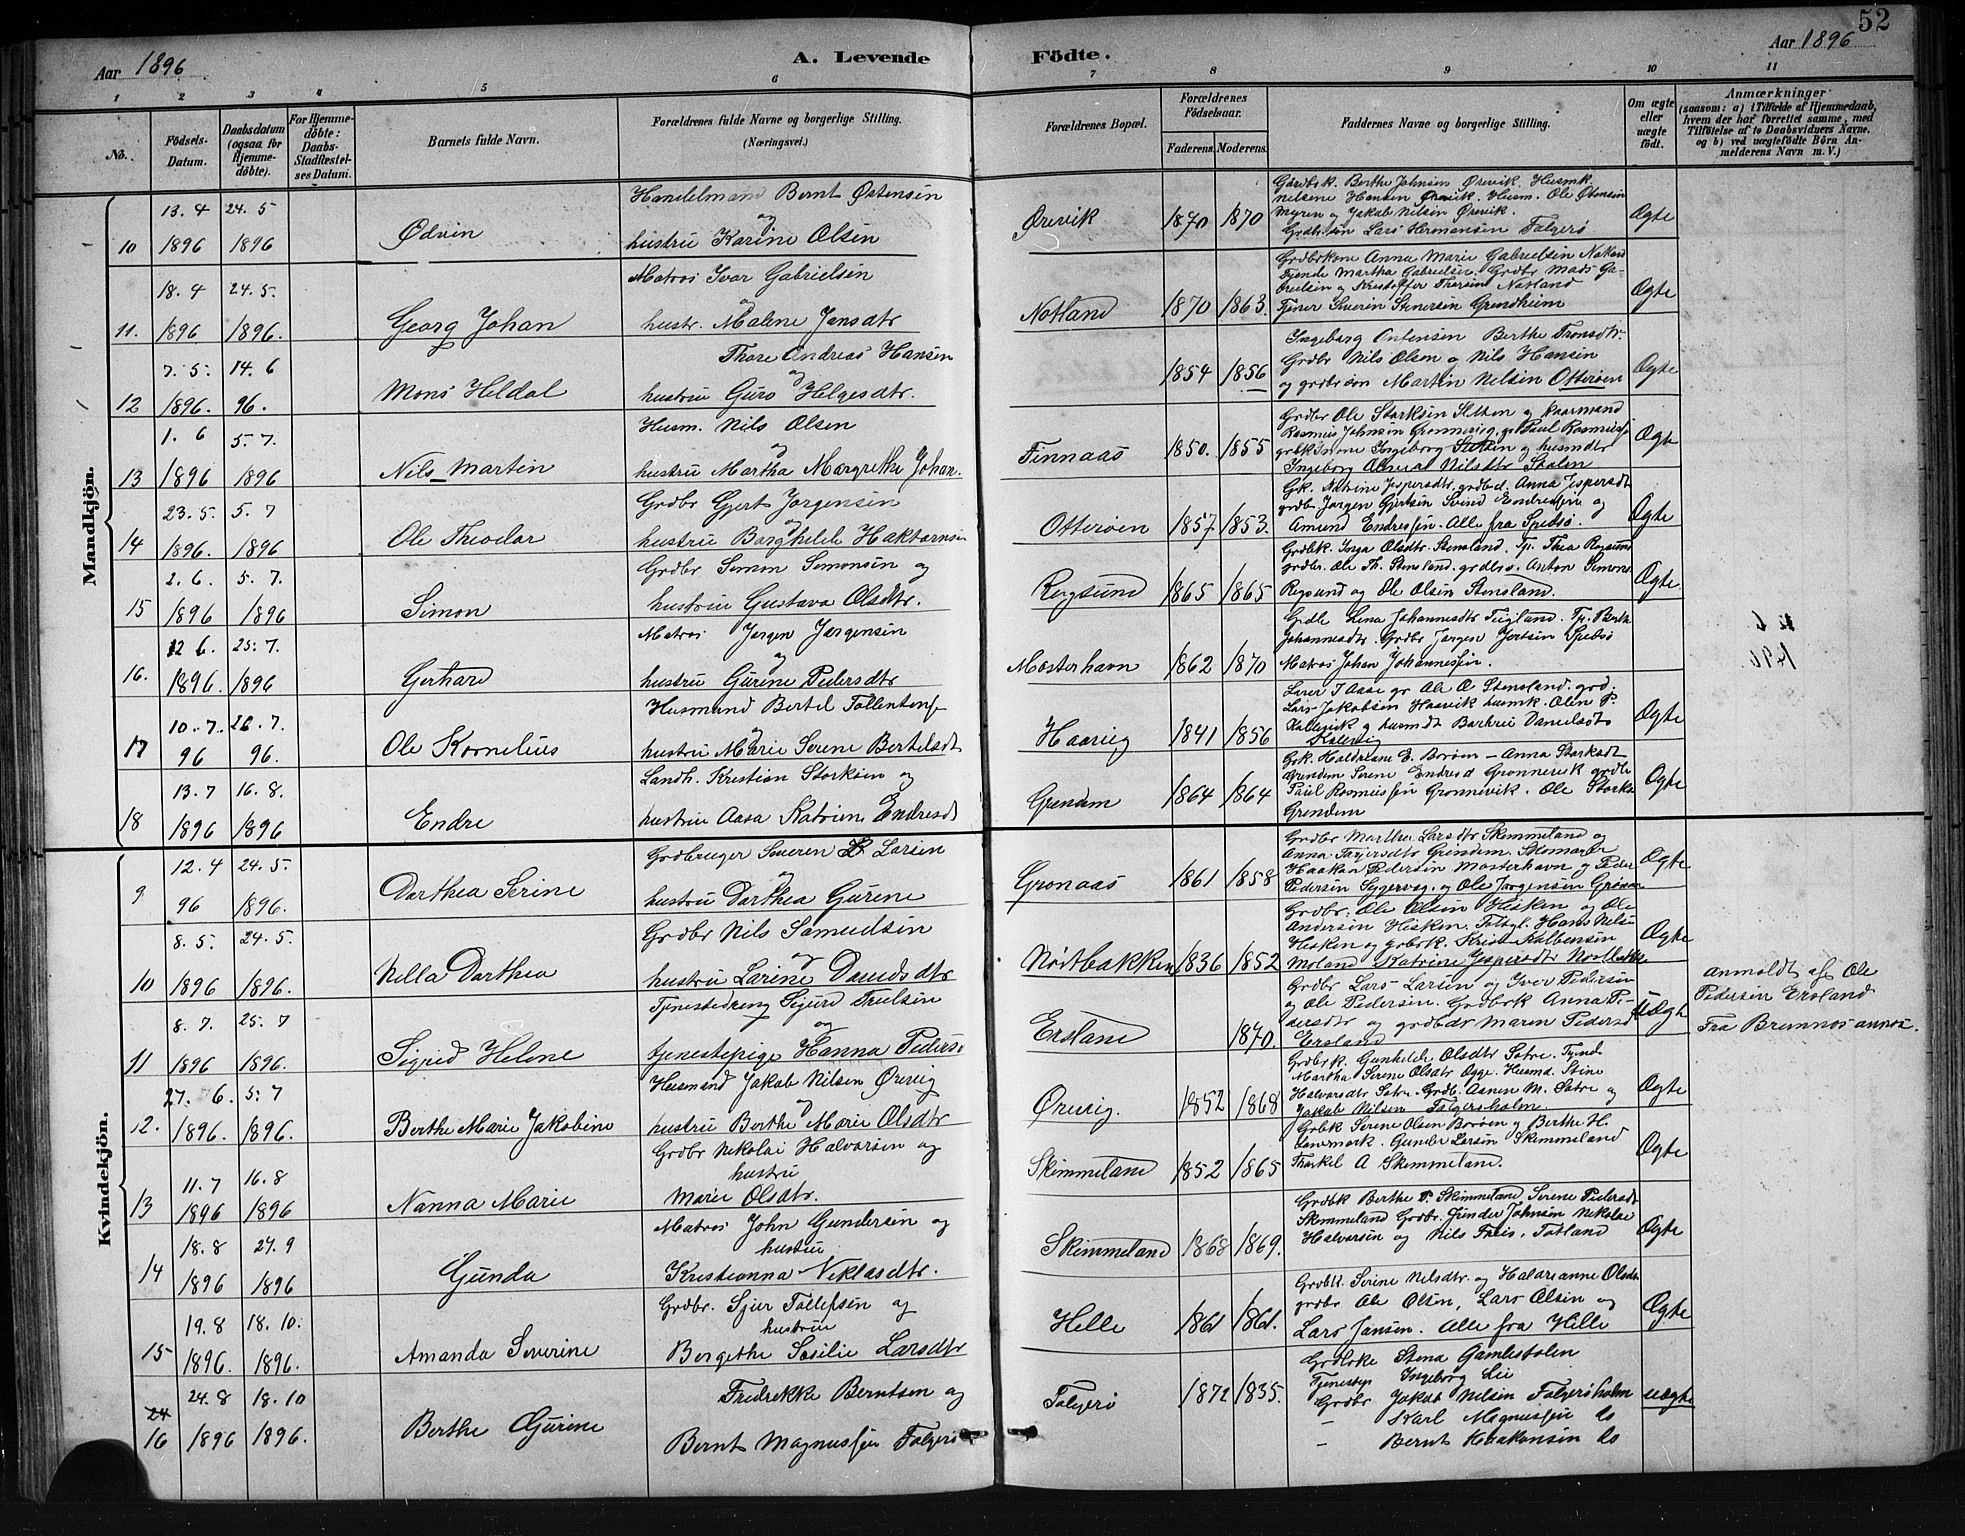 52
Aar 1896
A. Levende
Födte.
Aar 1896
1 2 3 4 5 6 7 8 9 10 11
No.
Födsels-Datum.
Daabsdatum (ogsaa for Hjemme-döbte).
For Hjemme-döbte: Daabs-Stadfæstel-ses Datum.
Barnets fulde Navn.
Forældrenes fulde Navne og borgerlige Stilling.
(Næringsvei.)
Forældrenes Bopæl.
Forældrenes Födselsaar.
Faderens. Moderens.
Faddernes Navne og borgerlige Stilling.
Om ægte eller uægte födt.
Anmærkninger
(saasom: a) i Tilfælde af Hjemmedaab, hvem der har forrettet samme, med Tilföielse af to Daabsvidners Navne, og b) ved uægtefödte Börn Anmelderens Navn m. V.)
Mandkjön.
10 13. 4 1896 24. 5 1896 Ødvin
Handelmand Bernt Østensen og
hustru Karine Olsen
Ørevik 1870 1870
Gårdbk. Berthe Johnsen Ørevik. Husmk.
Nilsene Hansen Ørevik. Husm. Ole Østensen
Myren og Jakob Nilsen Ørevik.
Grdbr.søn Lars Hermansen Folgerø
Ægte
11. 18. 4 1896 24. 5. 1896. Georg Johan
Matros Ivar Gabrielsen og
hustr. Malene Jensdtr
Notland 1870 1863.
Grdbrkone Anna Marie Gabrielsen Notland
Tjende Martha Gabrielsen. Grdbr Mads Ga-
brielsen og Kristoffer Thorsen Notland
Tjener Severin Stenersen Grendheim
Ægte
12 7. 5. 1896. 14. 6 96. Mons Heldal
Thore Andreas Hansen og
hustru Guro Helgesdtr.
1854 1856
Ingeborg Berthe Tronsdtr.
Grdbr Nils Olsen og Nils Hansen
og grdbrsøn Martin Nelsen Otterøen
Ægte
13 1. 6 1896 5. 7. 1896 Nils Martin
Husm. Nils Olsen og
hustru Martha Margrethe Johan.
Finnaas 1850. 1855
Grdbr Ole Storksen Sletten og
Rasmus Johnsen Paul Rasmuss
Ingeborg Sletten og husmdtr
Ingeborg Nilsdtr
Ægte
14 23. 5. 1896. 5. 7 1896 Ole Theodor
Grdbr Gjert Jorgensen og
hustru Borghild
Otterøen 1857 1853.
Gk. Katrine Jespersdtr. grdbd. Anna Jespersdt
grdbr Jorgen Gjertsen Svind Endresen og
Amund Endressen. Alle fra Spidsø.
Ægte
15 2. 6. 1896 5. 7. 1896 Simon
Grdbr Simon Simonsen og
hustru Gustava Olsdtr.
Rogsund 1865 1865
Grdbk. Inga Olsdtr. Stensland. Tp. Thea Rogsund
grdbr. Ole Th. Stensland. Anton Simons
Rogsund og Ole Olsen Stensland.
Ægte
16. 12 6. 1896. 25. 7. 1896 Gerhard
Matros Jorgen Jørgensen og
hustru Gurine Pedersdtr
Mosterhavn 1862 1870
Lena Johannesdtr Teigland. Tp. Berte
Johannesdtr. Grdbr Jorgen Spidsø
Matros Johan Johannessen.
17 10. 7. 96 26. 7. 96. Ole Kornelius
Husmand Bertel Tollevsen og
hustru Marie Serene Bertelsdt
Haavig 1841 1856
Lærer T Aase Ole O Stensland.
Lars Jakobsen Haavik husmk. Olen P.
Kallevik og husmdt Barbrue Danielsdt
Kallevig
Ægte
18 13. 7 1896 16. 8. 1896 Endre
Landh. Kristian Storksen og
hustru Aasa Katrine Endresdt
Grendem 1864 1864
Grk. Haldriane E. Boröen - Anna Storksdt
Grendem Serene Endresd Gronnevik grdbr
Paul Rasmussen Gronnevik. Ole Storks
Grendem
Ægte
Kvindekjön.
9 12. 4 96 24. 5. 1896. Dorthea Serine
Grdbruger Severen Larsen og
hustru Dorthea Gurine
Gronaas 1861 1858
Grdbr Marthe Larsdtr Skimmeland og
Anna Grendem.
Haakon Pedersen Mosterhavn og Peder
Pedersen og Ole Jorgensen Grönaas
Ægte
10 8. 5. 1896 24. 5. 1896. Nella Dorthea
Grdbr Nils Samuelsen og
hustru Larine Davidsdtr
Nordbakken 1836 1852
Grdbr. Ole Olsen Hisken og Ole
Andersen Hisken. Hans Nilsen
Hisken og gdbrk.
Moland Katrine Jespersdtr
Ægte
11 8. 7. 1896 25. 7 1896. Sigrid Helene
Tjenestedreng Sigurd Truelsen og
tjenestepige Hanna Pedersd
Ersland 1870.
Grdbr Lars Larsen og Iver Pedersen
og Ole Pedersen. Grdbrk Anna Pe-
dersdtr og grdbdr Maren Pedersd
Ersland
Uægte
Anmeldt af Ole
Pedersen Ersland
Fra Bremnes annex.
12. 27. 6. 1896. 5. 7 1896. Berthe Marie Jakobine
Husmand Jakob Nilsen Ørevig og
hustru Berthe Marie Olsdtr
Ørevig. 1852 1868
Grdbrk. Gunhilde Olsdtr Sotre. Tjend
Martha Serene Olsdtr Husmd. Stine
Halvorsdtr Sotre. Grdb. Aanen M. Sotre og
Jakob Nilsen Folgersholm
Ægte
13 11. 7 1896 16. 8 1896 Nanna Marie
Grdbr Nikolai Halvorsen og
hustru
Marie Olsdtr.
Skimmeland 1852 1865
Grbk Serene Olsen Boröen og Berthe H.
Gunder Larsen Skimmeland
Thorkel A Skimmeland.
Ægte
14 18. 8 1896 27. 9 1896 Gunda
Matros John Gundersen og
hustru
Kristianna Niklasdtr.
Skimmeland 1868 1869.
Grdbk Berthe P. Skimmeland, Serene Pedersdt
Skimmeland Grdbr. Gunder Johnsen Nikolai
Halvorsen og Nils Totland
Ægte
15 19. 8 1896. 18. 10. 1896. Amanda Severine
Grdbr. Sjur Tollefsen og
hustru
Bergethe Sesilie Larsdtr
Helle 1861 1861.
Grdbk. Serene Nilsdtr. og Haldrianne Olsdtr
grdbr Ole Olsen, Lars Olsen og
Lars Jansen. Alle fra Helle
Ægte
24
16 24. 8 1896 18. 10 1896. Berthe Gurine
Fredrekke Berntsen og
Bernt Magnussen Folgerø
Folgerø 1872 1835.
Grdbrke Stena Gamlestolen
Tjenestep Ingeborg Lie
Grdbr Jakob Nilsen Folgerøholm
- Karl Magnussen do
- Bernt Haakonsen do
uægte